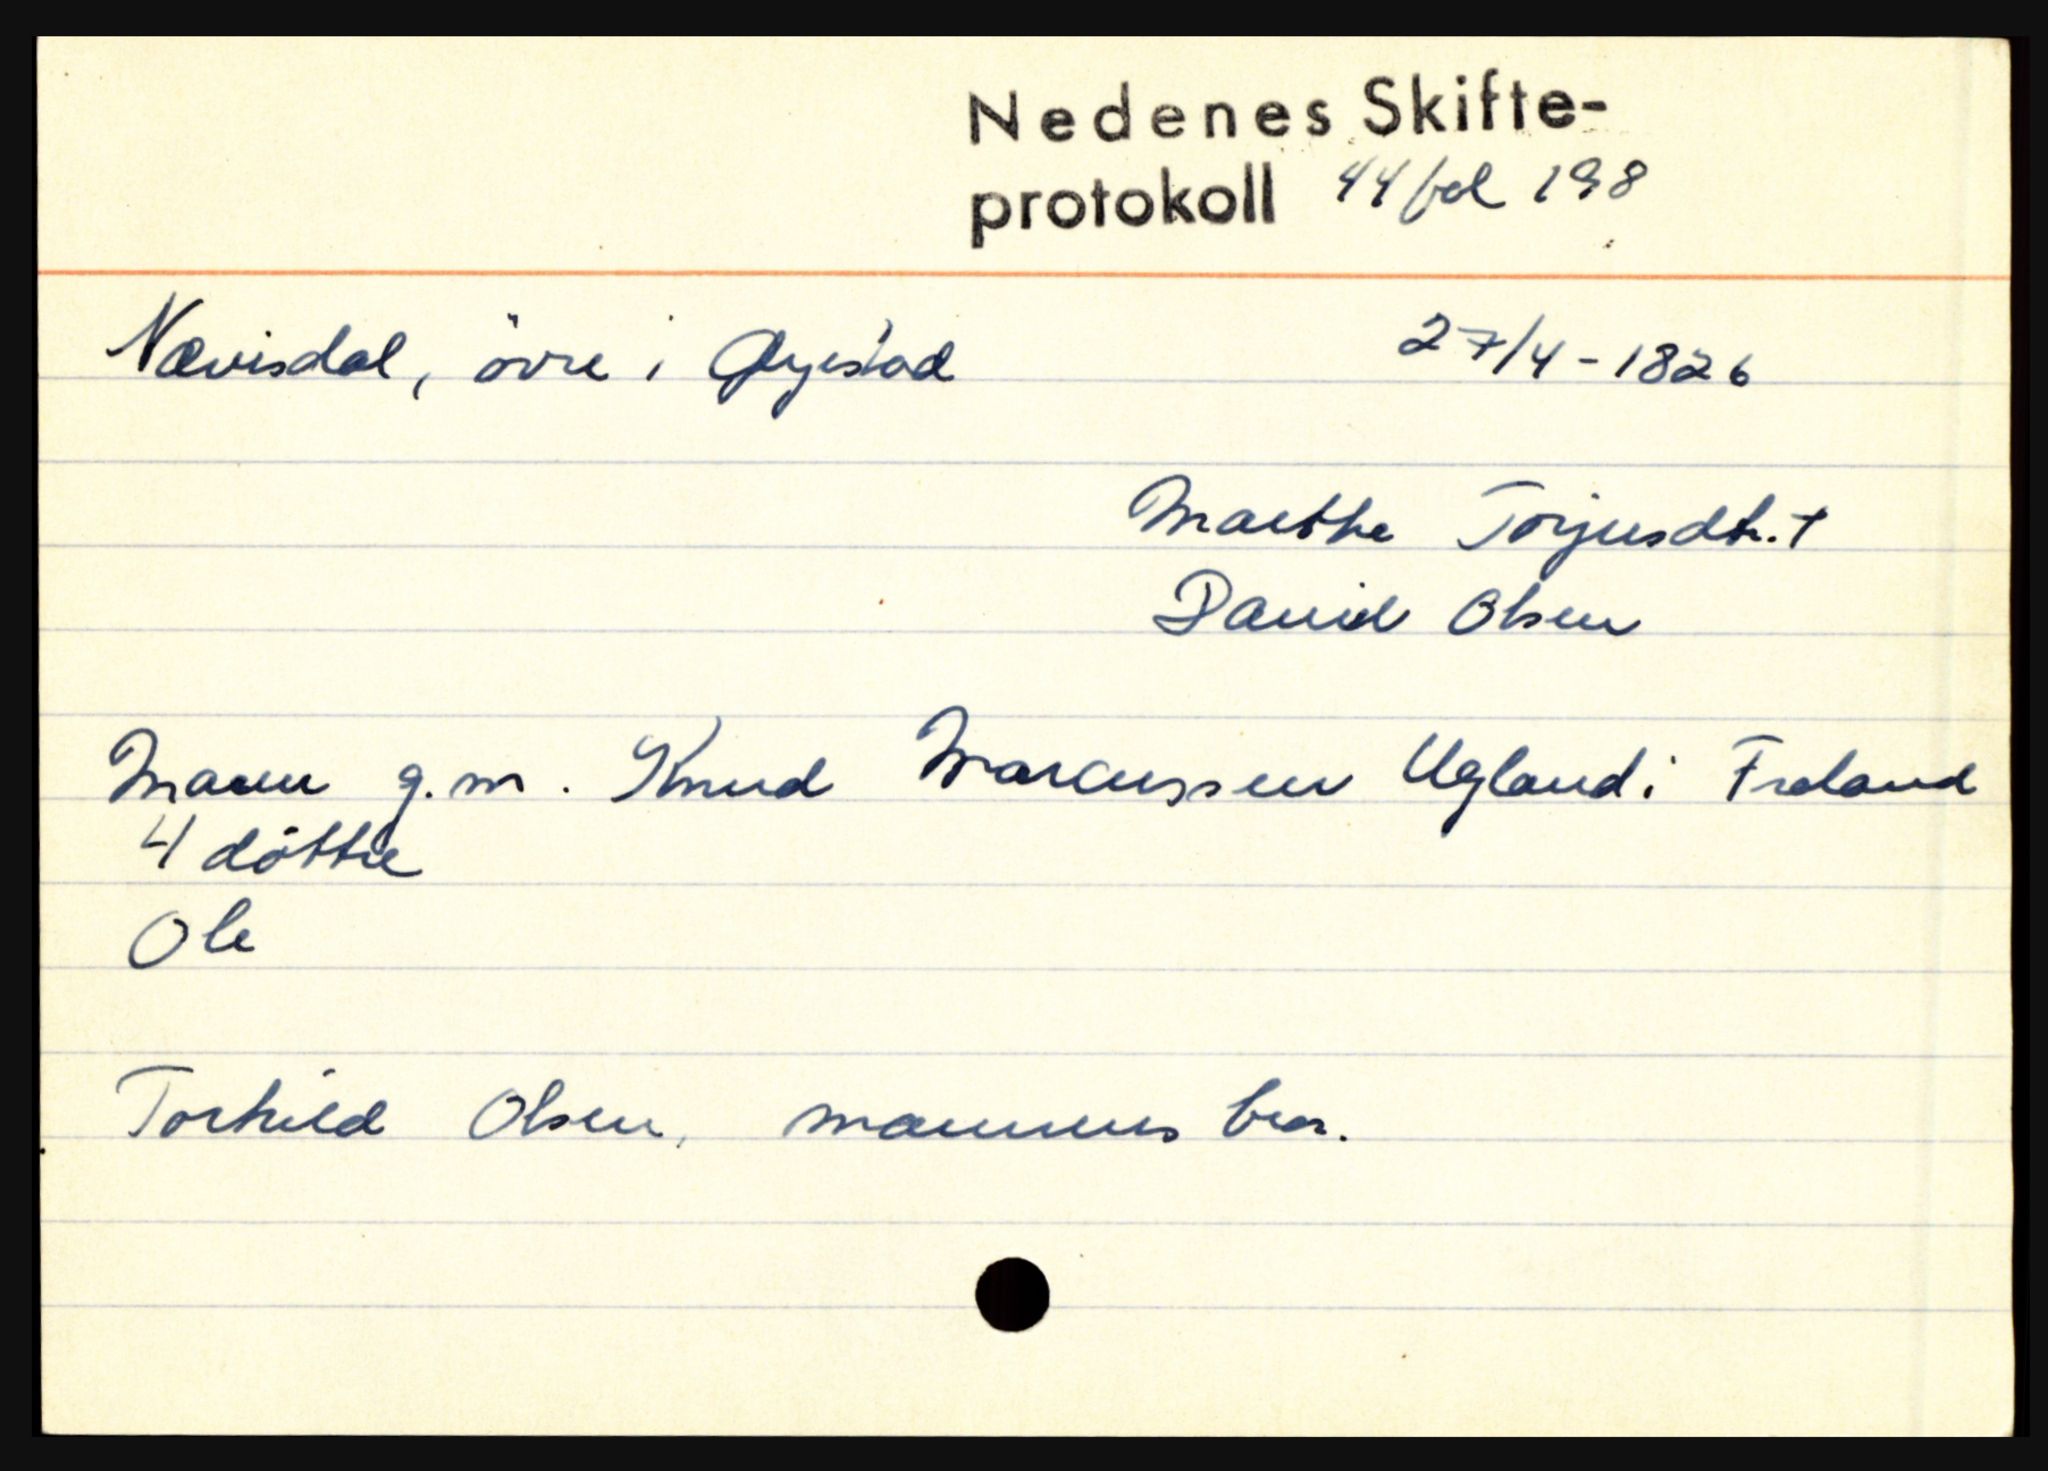 Nedenes Skifte-
protokoll 44 fol 198
Nævisdal, övre i Øyestad 27/4-1826
Marthe Torjusdtr. †
David Olsen
Maren g.m. Knud Marcussen Ugland i Froland
4 döttre
Ole
Torkild Olsen, mannens bror.